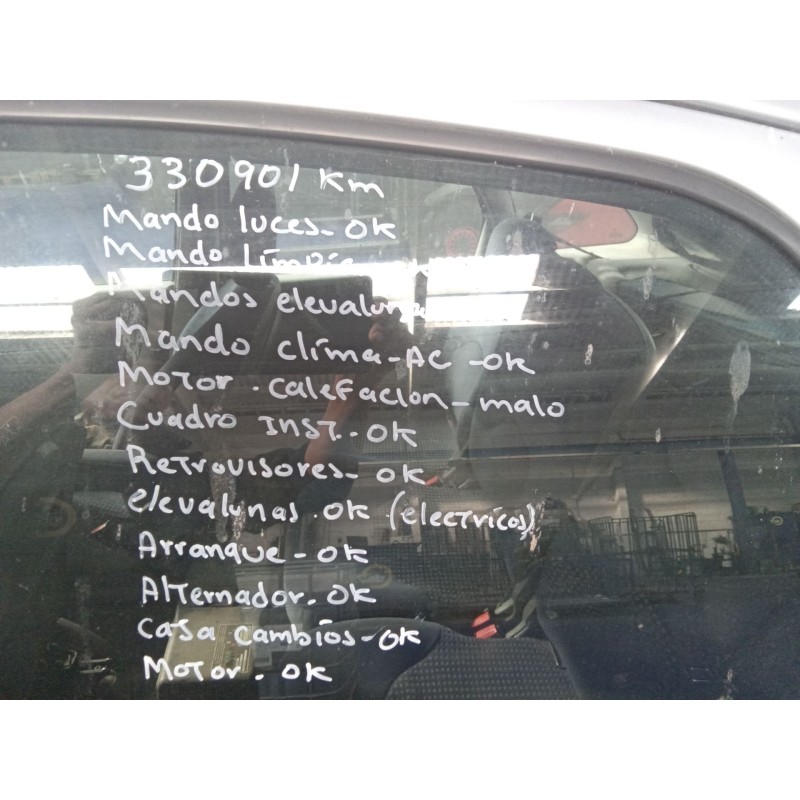 330901 Km
Mando luces - OK
Mando limpia
Mandos elevalunas
Mando clima - AC - OK
Motor . calefacion - malo
Cuadro INST. - OK
Retrovisores - OK
elevalunas . OK (electricos)
Arranque - OK
Alternador . OK
Casa cambios - OK
Motor . OK